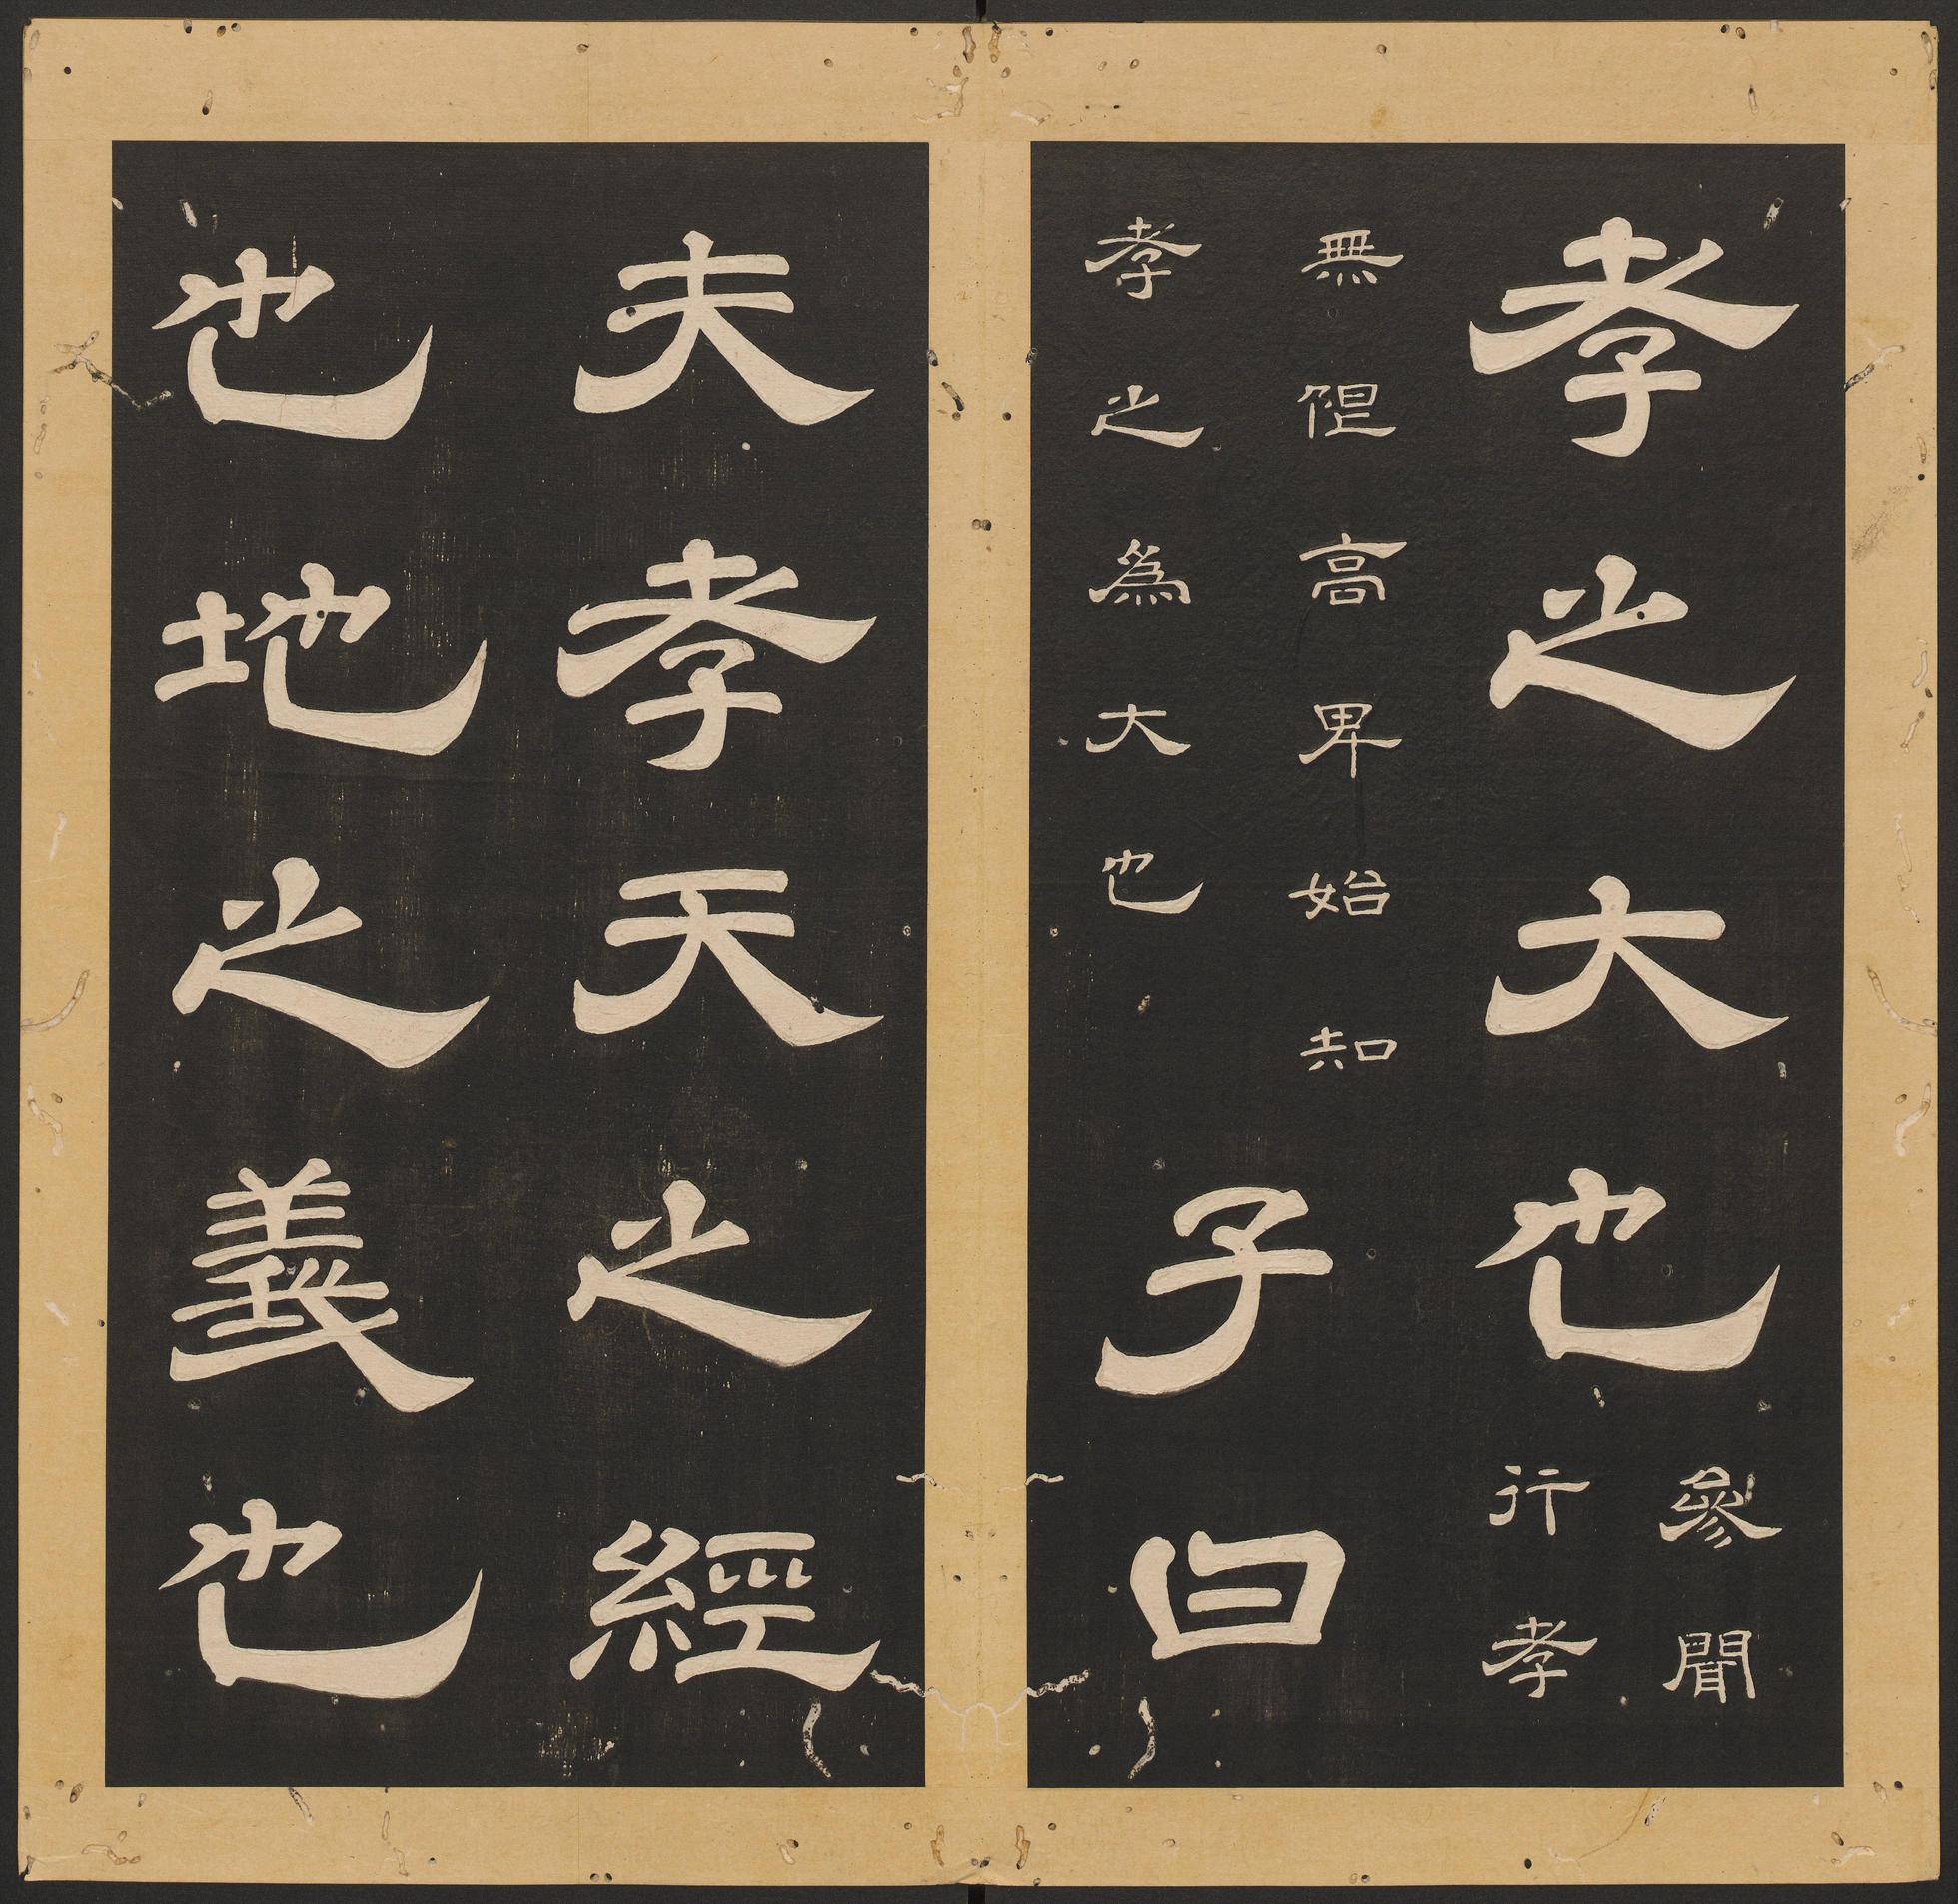 孝之大也參聞
行孝
無限高卑始知
孝之為大也
子曰
夫孝天之經
也地之義也